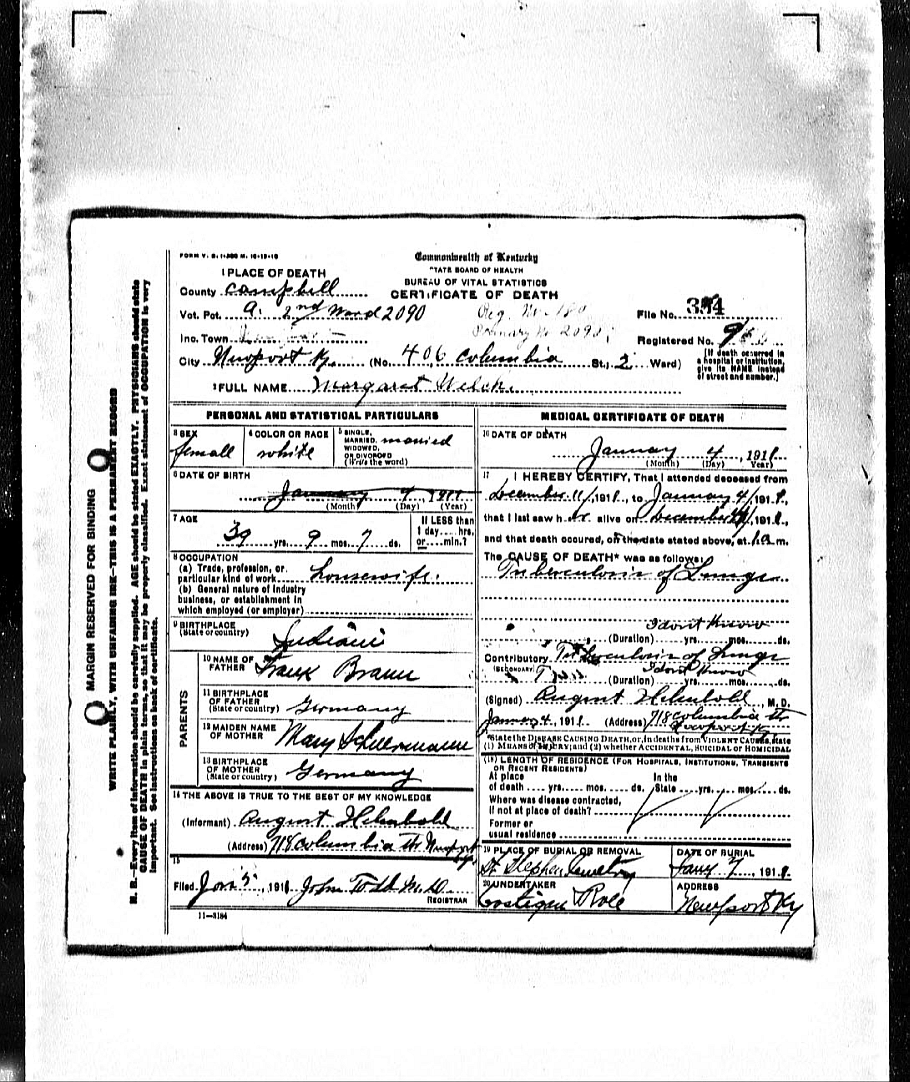 FORM V. S. 1-
Commonwealth of Kentucky
STATE BOARD OF HEALTH
BUREAU OF VITAL STATISTICS
CERTIFICATE OF DEATH
1 PLACE OF DEATH
County Campbell
Vot. Pct. A. 2nd Ward 2090
File No. 334
Inc. Town
Registered No.
City Newport Ky. (No. 406 Columbia St; 2 Ward)
(If death occurred in a hospital or institution, give its NAME instead of street and number.)
2 FULL NAME Margaret
PERSONAL AND STATISTICAL PARTICULARS
3 SEX
female
4 COLOR OR RACE
white
5 SINGLE, MARRIED, WIDOWED, OR DIVORCED (Write the word)
married
6 DATE OF BIRTH
January 4
(Month) (Day) (Year)
7 AGE
39 yrs. 9 mos. 7 ds.
If LESS than 1 day.... hrs. or.... min.?
8 OCCUPATION
(a) Trade, profession, or particular kind of work housewife.
(b) General nature of industry business, or establishment in which employed (or employer)
9 BIRTHPLACE (State or country)
10 NAME OF FATHER
Frank
11 BIRTHPLACE OF FATHER (State or country)
Germany
12 MAIDEN NAME OF MOTHER
Mary
13 BIRTHPLACE OF MOTHER (State or country)
Germany
PARENTS
14 THE ABOVE IS TRUE TO THE BEST OF MY KNOWLEDGE
(Informant) August Helmbold
(Address) 718 Columbia Str Newport Ky.
15
Filed Jan 5, 1918 John Todd M.D.
REGISTRAR
11-3184
MEDICAL CERTIFICATE OF DEATH
16 DATE OF DEATH
January 4, 1918
(Month) (Day) Year)
17 I HEREBY CERTIFY, That I attended deceased from
December 11/, 1918, to January 4/, 1918,
that I last saw her alive on December, 1918,
and that death occured, on the date stated above, at 1 a m.
The CAUSE OF DEATH* was as follows:
Tuberculosis of Lungs
I dont Know
(Duration) yrs. mos. ds.
Contributory Tuberculosis of Lungs
(SECONDARY) I dont Know
(Duration) yrs. mos. ds.
(Signed) August Helmbold, M. D.
January 4, 1918 (Address) 718 Columbia Str
Newport Ky.
*State the DISEASE CAUSING DEATH, or, in deaths from VIOLENT CAUSES, state (1) MEANS OF INJURY; and (2) whether ACCIDENTAL, SUICIDAL OR HOMICIDAL
(18) LENGTH OF RESIDENCE (FOR HOSPITALS, INSTITUTIONS, TRANSIENTS OR RECENT RESIDENTS)
At place of death .... yrs. .... mos. .... ds. In the State .... yrs. .... mos. .... ds.
Where was disease contracted, if not at place of death?
Former or usual residence
19 PLACE OF BURIAL OR REMOVAL
St Stephen Cemetery
DATE OF BURIAL
Jany 7, 1918.
20 UNDERTAKER
Costigan
ADDRESS
Newport Ky
MARGIN RESERVED FOR BINDING
WRITE PLAINLY, WITH UNFADING INK—THIS IS A PERMANENT RECORD
N. B.—Every item of information should be carefully supplied. AGE should be stated EXACTLY. PHYSICIANS should state
CAUSE OF DEATH in plain terms, so that it may be properly classified. Exact statement of OCCUPATION is very
important. See instructions on back of certificate.